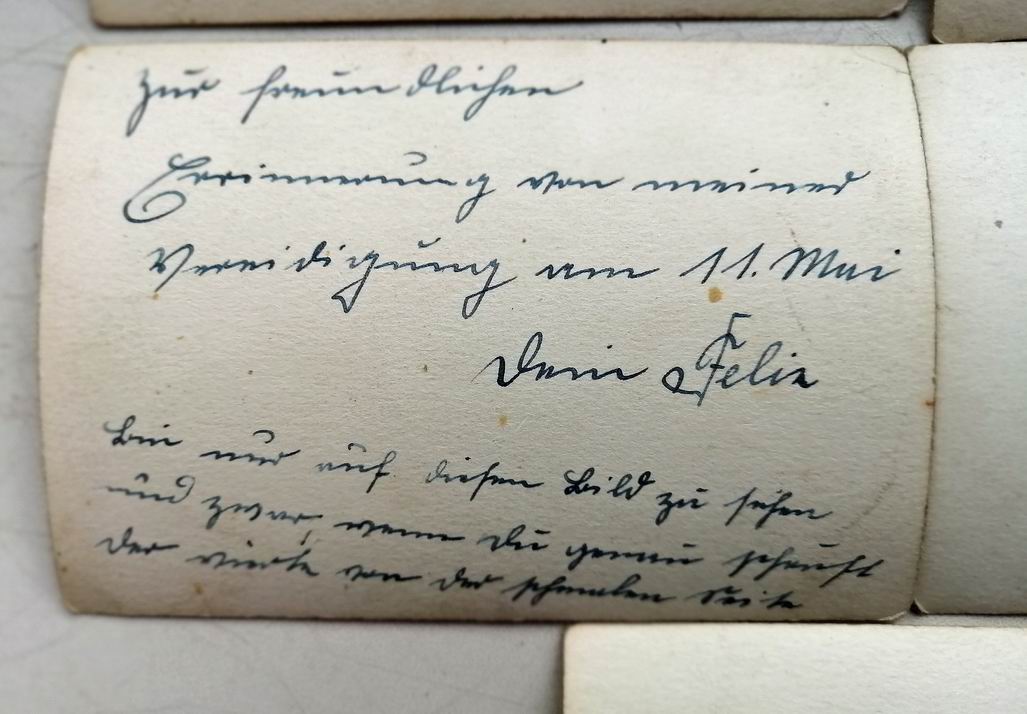 Zur freundlichen
Errinnerung von meiner
Vereidigung am 11. Mai
Dein Felix
Bin nur auf diesen Bild zu sehen
und zwar, wenn Du genau schaust
der vierte von der schmalen Seite